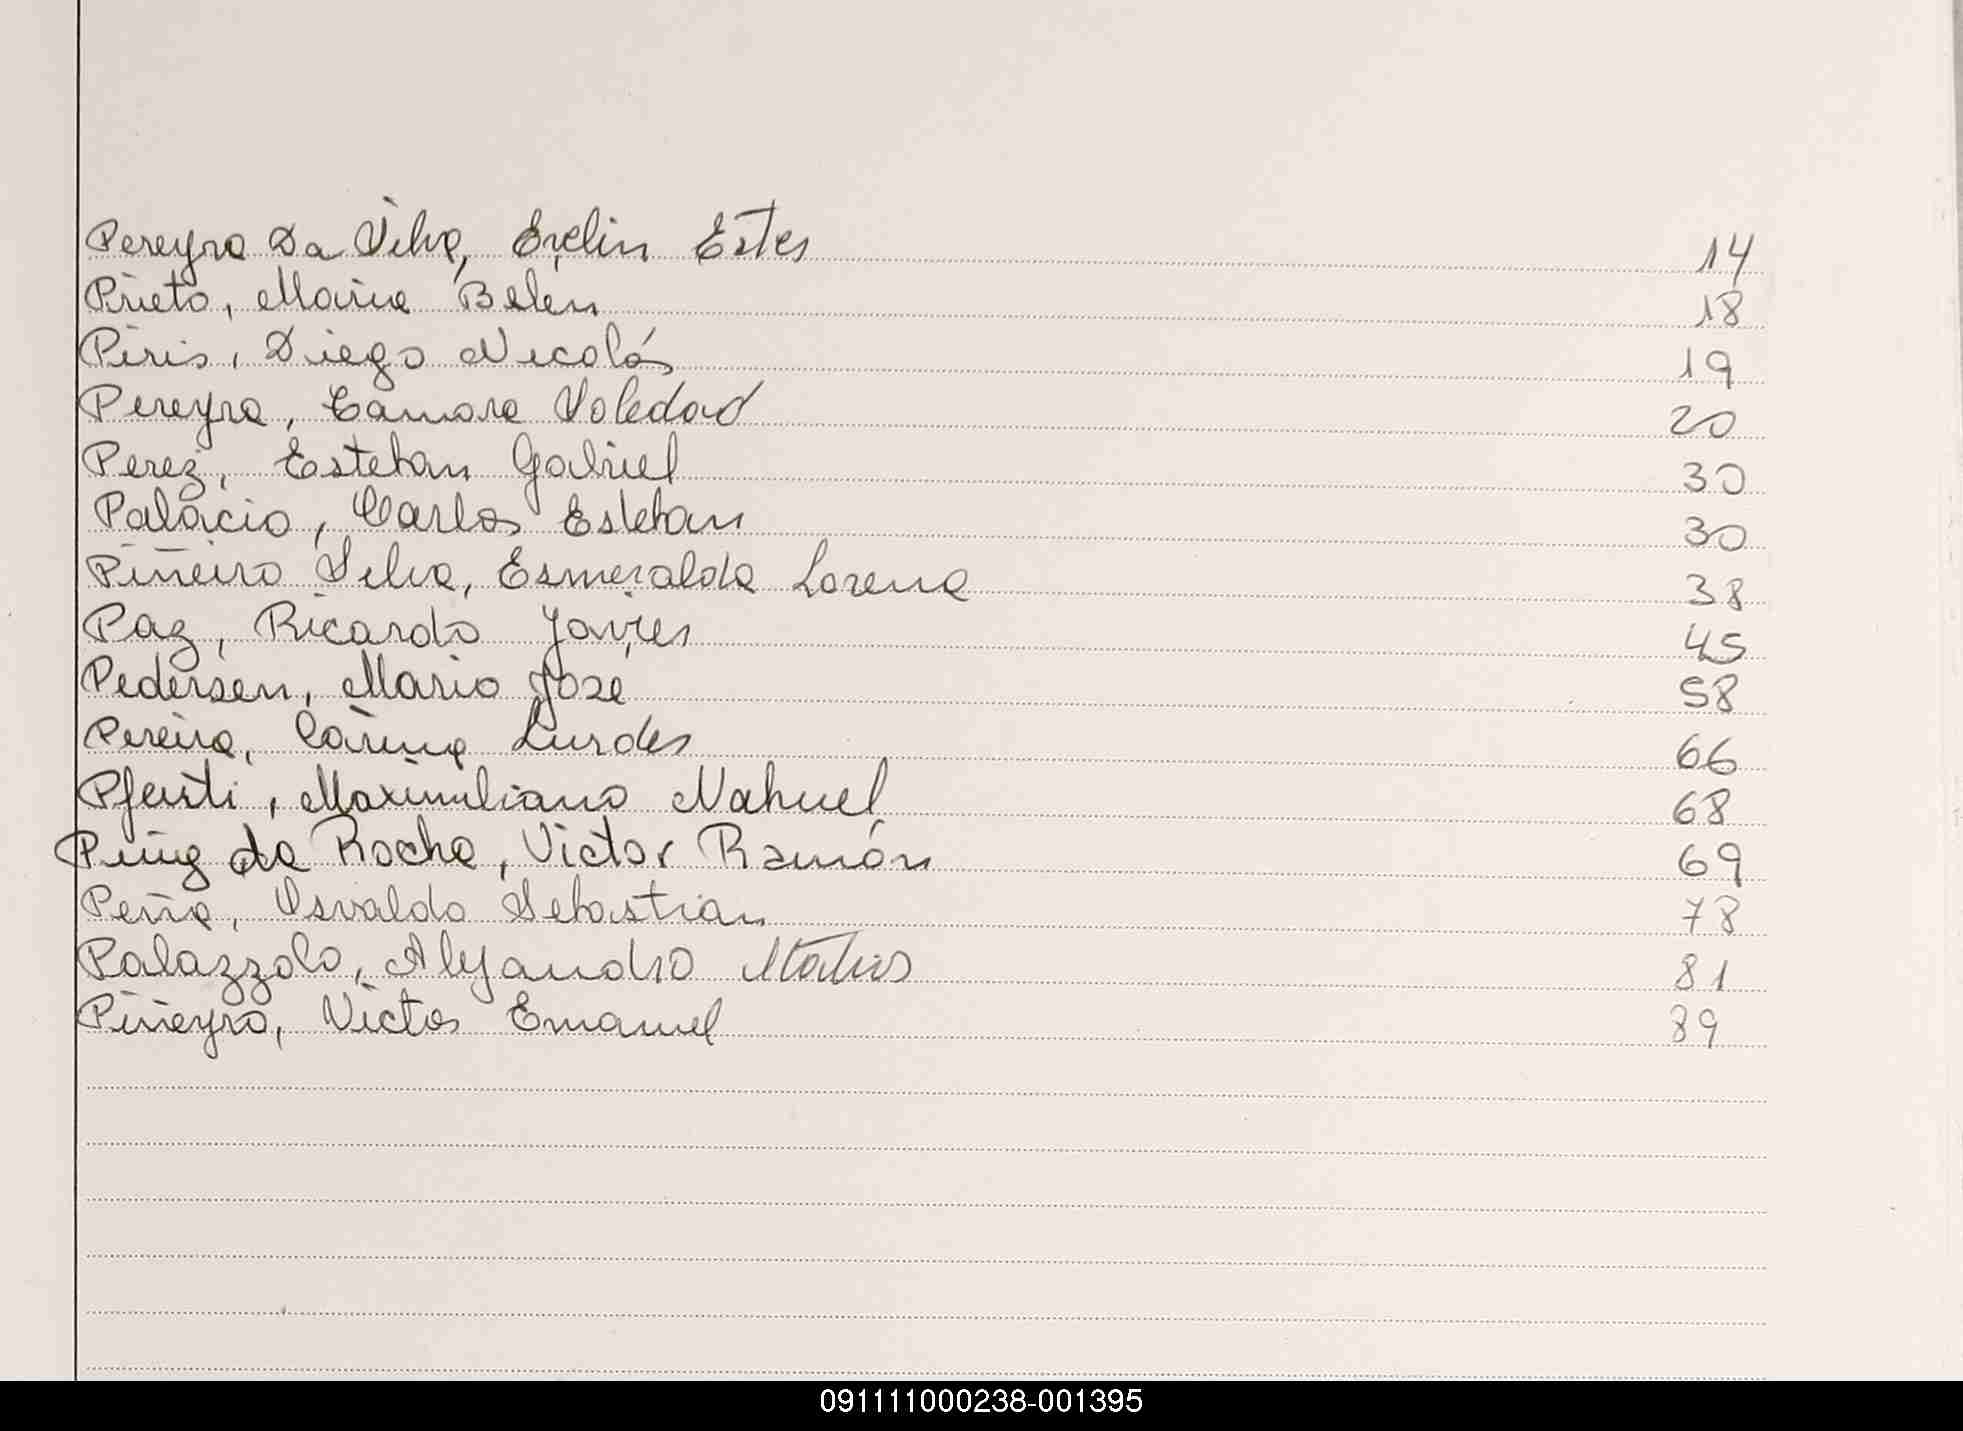 Pereyra Da Silva, Evelin Ester 14
Prieto, Maria Belen 18
Piris, Diego Nicolás 19
Pereyra, Tamara Soledad 20
Perez, Esteban Gabriel 30
Palacio, Carlos Esteban 30
Piñeiro Silva, Esmeralda Lorena 38
Paz, Ricardo Javier 45
Pedersen, Mario José 58
Pereira, Carina Lurdes 66
Maximiliano Nahuel 68
Puig da Rocha, Victor Ramón 69
Peña, Osvaldo Sebastian 78
Palazzolo, Alejandro Matias 81
Piñeyro, Victor Emanuel 89
091111000238-001395